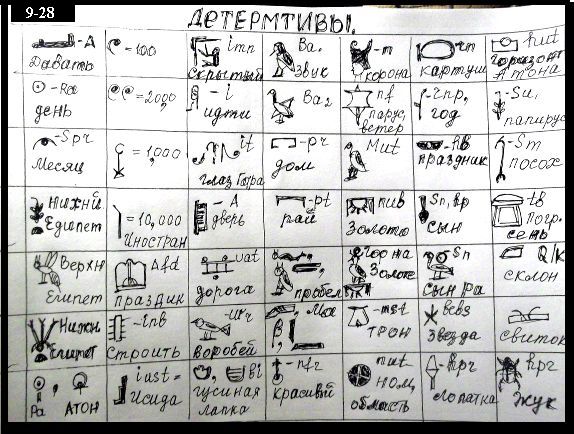 9-28
ДЕТЕРМТИВЫ.
-A
Давать
-100
imn
Скрытый
Ba.
Звук
-m
корона
rn
картуш
hut
горизонт
Атона
-Ra
день
=200,
-i
идти
Ba2
nf
парус,
ветер
-rnp,
год
-Su,
папирус
-Spr
Месяц
=1,000
it
глаз Гора
-pr
дом
Mut
-hb
праздник
-Sm
посох
Нижнй
Египет
=10,000
Иностран
-A
дверь
-pt
рай
пив
Золото
Sn, hp
сын
tB
погр.
сень
Верхн
Египет
Afd
праздик
uat
дорога
пробел
Гор на
Золоте
Sn
сын Ра
Q/K
склон
Нижн
Египет
-inb
строить
-wr
воробей
-mst
трон
bcbs
Звезда
свиток
,
Ра
Атон
iust=
Исида
bi
гусиная
лапка
-nfr
красивый
nut
ном,
область
-hpr
лопатка
hpr
Жук